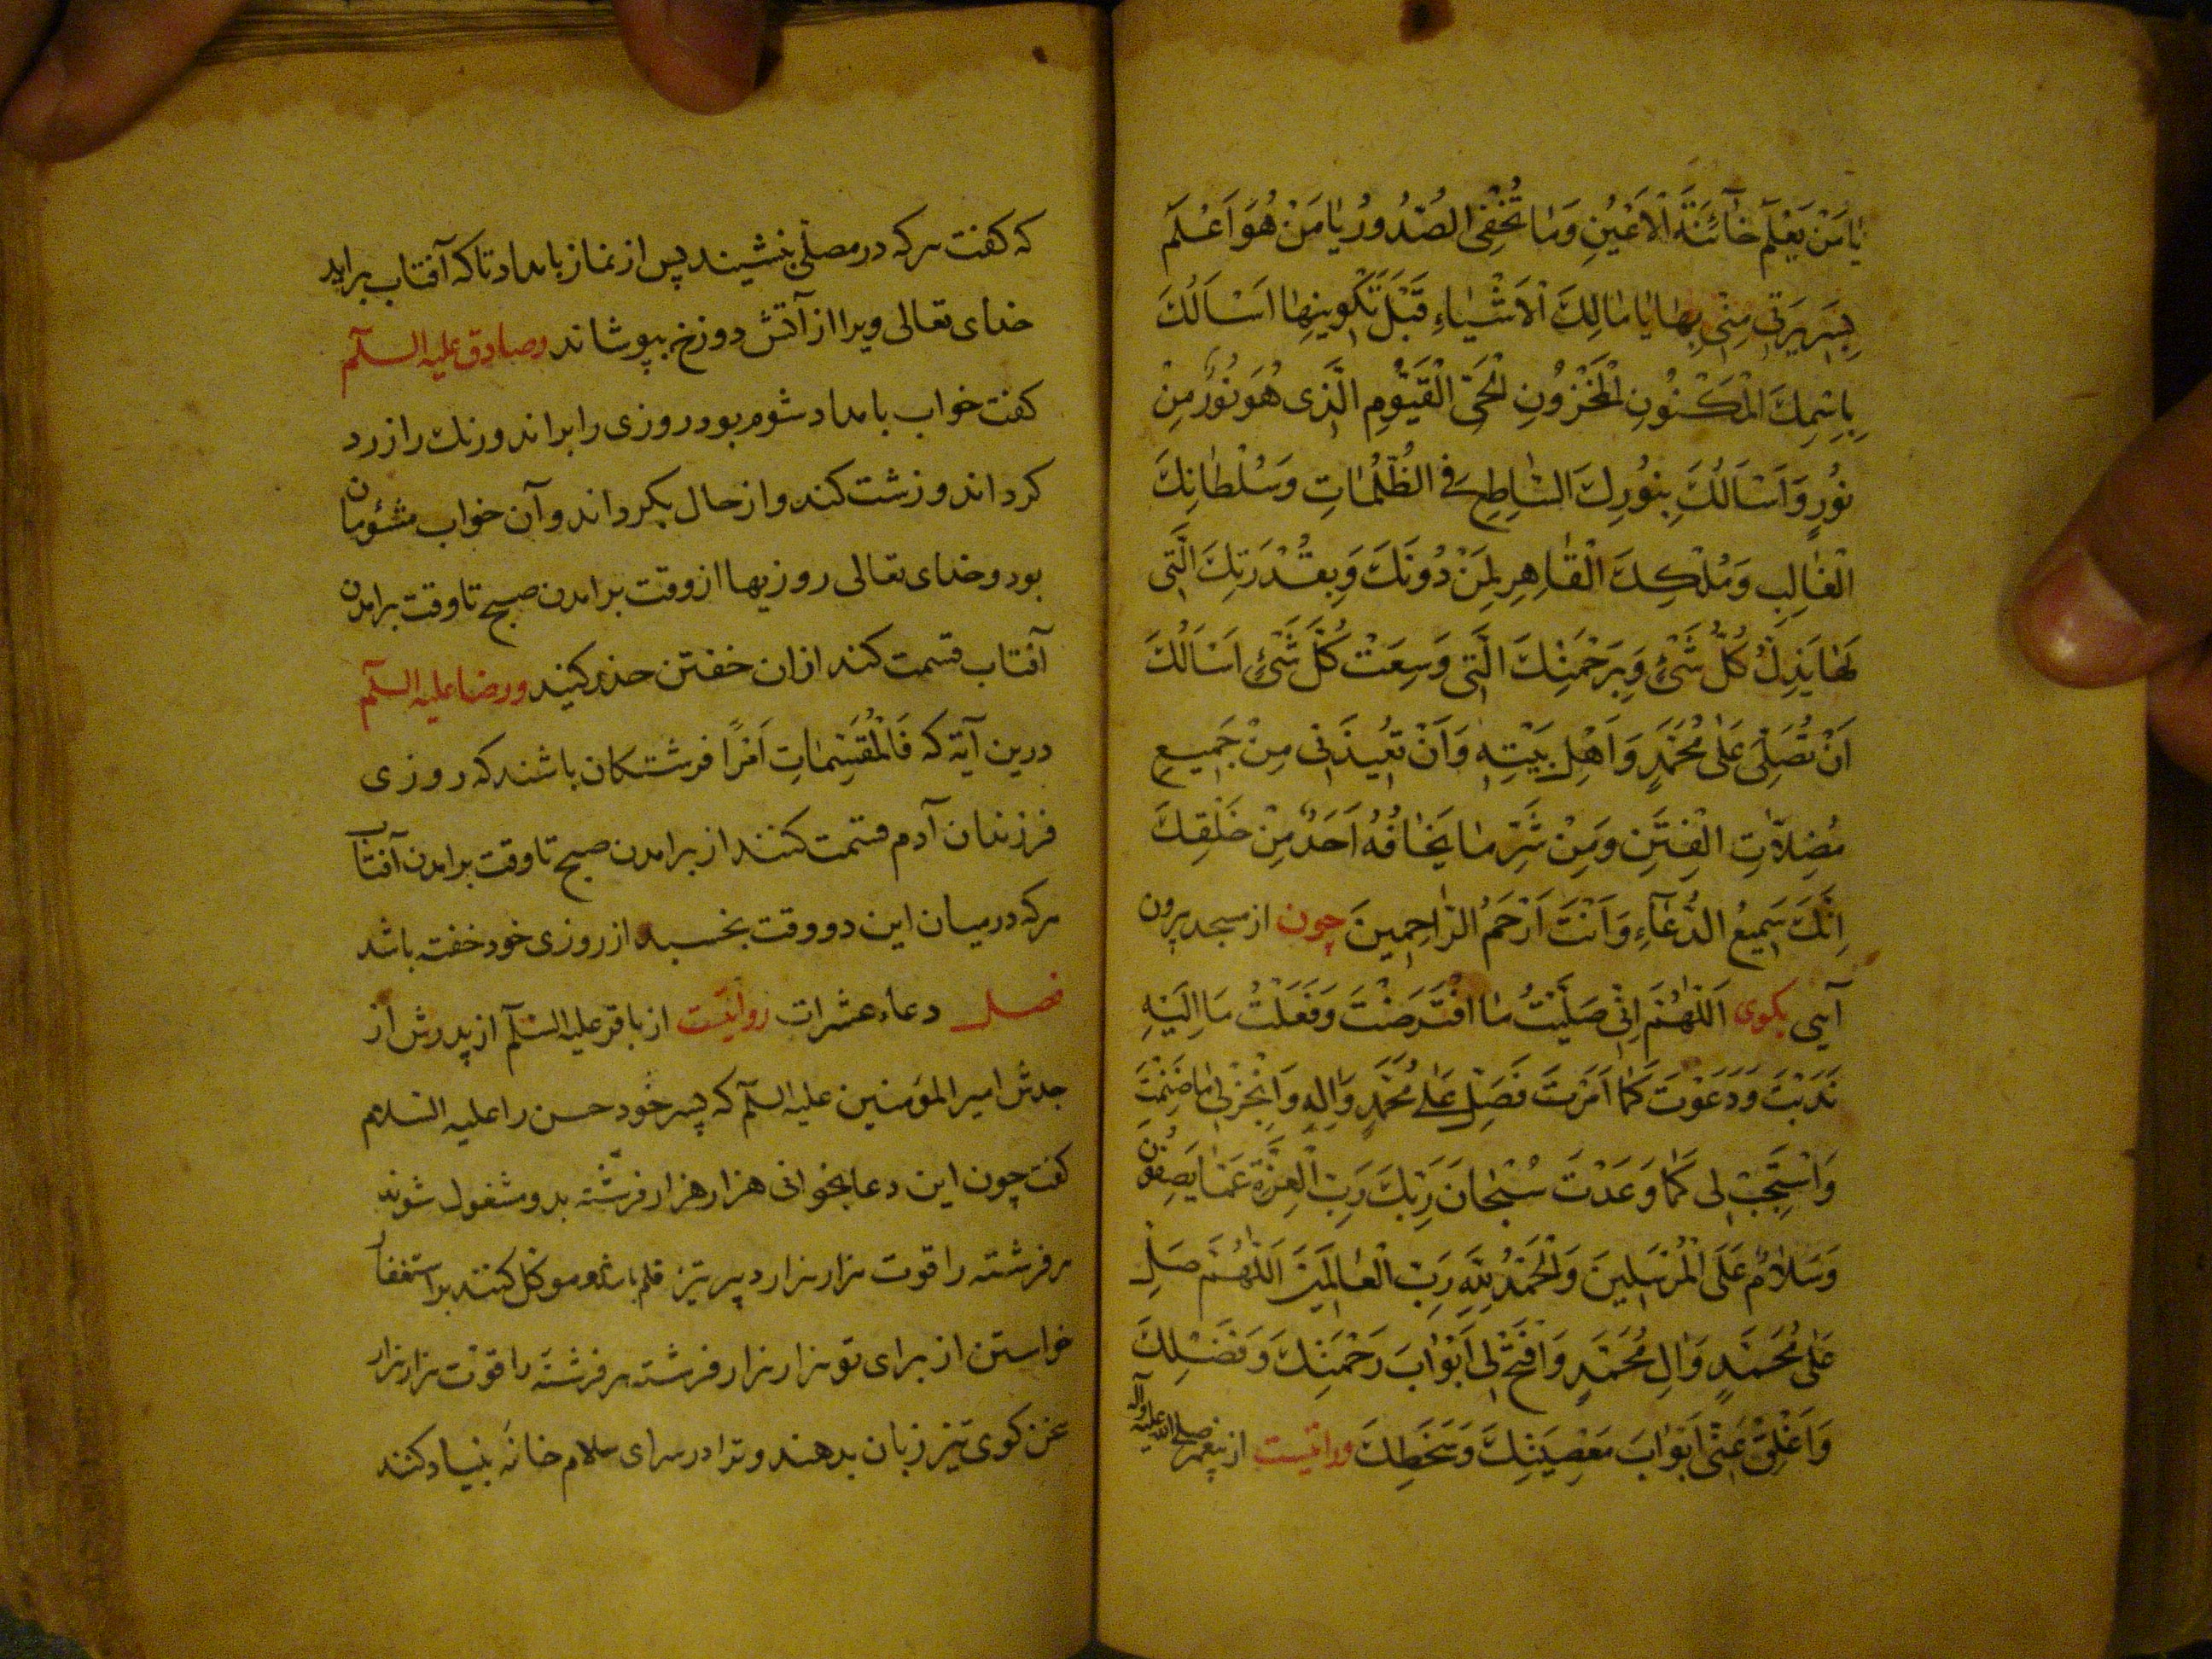 یا مَنْ یَعْلَمُ خائِنَةَ الْاَعْیُنِ وَما تُخْفِی الصُّدُورُ یا مَنْ هُوَ اَعْلَمُ
بِسَریرَتی مِنّی بِها یا مالِكَ الْاَشْیاءِ قَبْلَ تَكْوینِها اَسْاَلُكَ
بِاسْمِكَ الْمَكْنُونِ الْمَخْزُونِ الْحَیِّ الْقَیُّومِ الَّذی هُوَ نُورٌ مِنْ
نُورٍ وَاَسْاَلُكَ بِنُورِكَ السّاطِعِ فی الظُّلُماتِ وَسُلْطانِكَ
الْغالِبِ وَمُلْكِكَ الْقاهِرِ لِمَنْ دُونَكَ وَبِقُدْرَتِكَ الَّتی
بِها یَذِلُّ كُلُّ شَیْءٍ وَبِرَحْمَتِكَ الَّتی وَسِعَتْ كُلَّ شَیْءٍ اَسْاَلُكَ
اَنْ تُصَلِّیَ عَلی مُحَمَّدٍ وَاَهْلِ بَیْتِهِ وَاَنْ تُعیذَنی مِنْ جَمیعِ
مُضِلّاتِ الْفِتَنِ وَمِنْ شَرِّ ما یَخافُهُ اَحَدٌ مِنْ خَلْقِكَ
اِنَّكَ سَمیعُ الدُّعاۤءِ وَاَنْتَ اَرْحَمُ الرّاحِمینَ چون از مسجد بیرون
آیی بکوی اَللّهُمَّ اِنّی صَلَّیْتُ مَا افْتَرَضْتَ وَفَعَلْتُ ما اِلَیْهِ
نَدَبْتَ وَدَعَوْتَ كَما اَمَرْتَ فَصَلِّ عَلی مُحَمَّدٍ وَالِهِ وَاَنْجِزْ لی ما ضَمِنْتَ
وَاسْتَجِبْ لی كَما وَعَدْتَ سُبْحانَ رَبِّكَ رَبِّ الْعِزَّةِ عَمّا یَصِفُونَ
وَسَلامٌ عَلَی الْمُرْسَلینَ وَالْحَمْدُ لِلّهِ رَبِّ الْعالَمینَ اَللّهُمَّ صَلِّ
عَلی مُحَمَّدٍ وَالِ مُحَمَّدٍ وَافْتَحْ لی اَبْوابَ رَحْمَتِكَ وَفَضْلِكَ
وَاَغْلِقْ عَنّی اَبْوابَ مَعْصِیَتِكَ وَسَخَطِكَ وروایتست از پیغمبر صلی الله علیه وآله
که کفت هرکه در مصلّی بنشیند پس از نماز بامداد تا که آفتاب براید
خدای تعالی ویرا از آتش دوزخ بپوشاند وصادق علیه السلم
کفت خواب بامداد شوم بود روزی را براند ورنك را زرد
کرداند وزشت کند واز حال بکرداند وآن خواب مشئومان
بود وخدای تعالی روزیها از وقت برامدن صبح تا وقت برامدن
آفتاب قسمت کند ازان خفتن حذر کنید ورضا علیه السلم
درین آیة که فَالْمُقَسِّماتِ اَمْرًا فرشتکان باشند که روزی
فرزندان آدم قسمت کنند از برامدن صبح تا وقت برامدن آفتاب
هرکه در میان این دو وقت بخسبد از روزی خود خفته باشد
فصل دعاء عشرات روایتست از باقر علیه السلم از پدرش از
جدش امیر المؤمنین علیه السلم که پسر خود حسن را علیه السلام
کفت چون این دعا بخوانی هزار هزار فرشته بدو مشغول شوند
هر فرشته را قوت هزار هزار دبیر تیز قلم باشد وموکل کنند بر استغفار
خواستن از برای تو هزار هزار فرشته هر فرشته را قوت هزار هزار
سخن کوی تیز زبان بدهند وترا در سرای سلام خانه بنیاد کنند